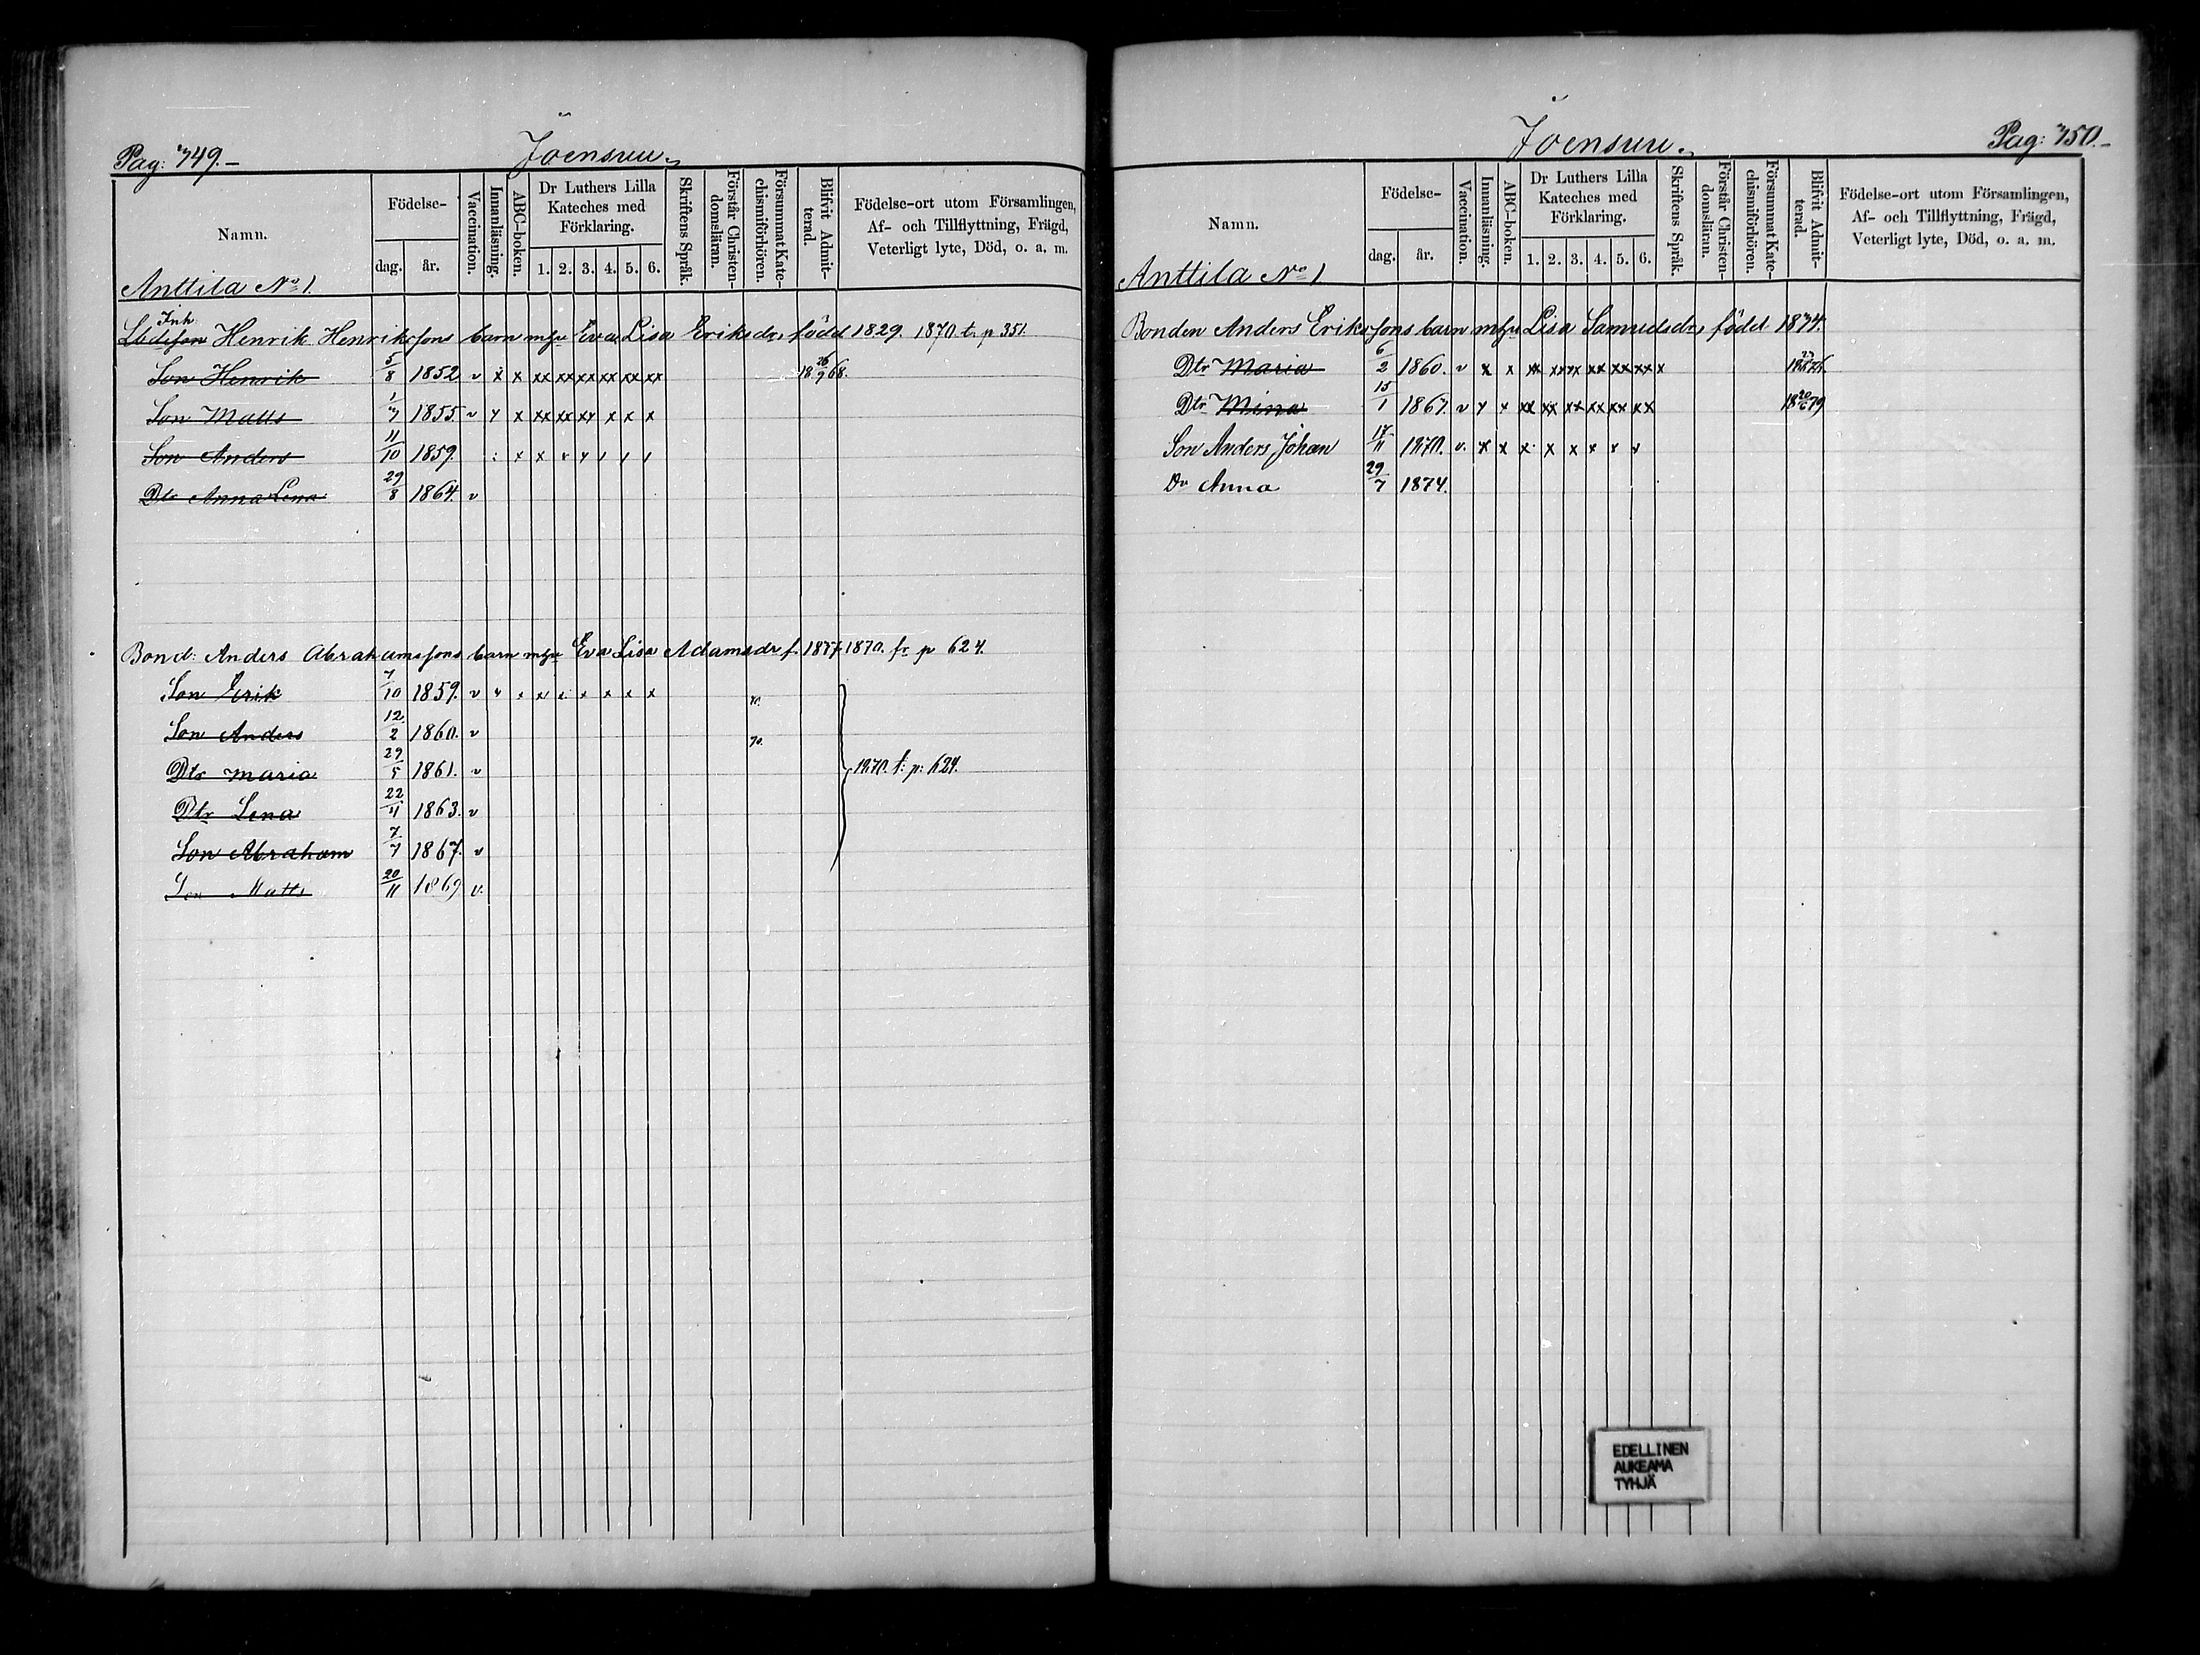 Pag: 749.-
Joensuu.
Namn.
Födelse-
dag.
år.
Vaccination.
Innanläsning.
ABC-boken.
Dr Luthers Lilla
Kateches med
Förklaring.
1. 2. 3. 4. 5. 6.
Skriftens Språk.
Förstår Christen-
domsläran.
Försummat Kate-
chismiförhören.
Blifvit Admit-
terad.
Födelse-ort utom Församlingen,
Af- och Tillflyttning, Frägd,
Veterligt lyte, Död, o. a. m.
Anttila No 1.
Inh.
Henrik Henrikssons barn m hu Eva Lisa Eriksdr, född 1829. 1870 t. p 351.
Son Henrik 5/8 1852 v x x xx xx xx xx xx xx 18 26/9 68.
Son Matts 1/7 1855. v x x xx xx xx x x x
Son Anders 11/10 1859.
Dtr Anna Lena 29/8 1864. v
Bond: Anders Abrahamssons barn m hu Eva Lisa Adamsdr f. 1870. fr p 624.
Son Erik 7/10 1859. v x x x x x x x x 70.
Son Anders 12/2 1860. v 70.
Dtr Maria 29/5 1861. v 1870. t: p: 624.
Dtr Lena 22/4 1863. v
Son Abraham 7/7 1867. v
Son Matts 20/11 1869 v.
Joensuu.
Pag: 750.-
Namn.
Födelse-
dag.
år.
Vaccination.
Innanläsning.
ABC-boken.
Dr Luthers Lilla
Kateches med
Förklaring.
1. 2. 3. 4. 5. 6.
Skriftens Språk.
Förstår Christen-
domsläran.
Försummat Kate-
chismiförhören.
Blifvit Admit-
terad.
Födelse-ort utom Församlingen,
Af- och Tillflyttning, Frägd,
Veterligt lyte, Död, o. a. m.
Anttila No 1
Bonden Anders Erikssons barn m hu Lisa Samuelsdr, född 1834.
Dtr Maria 6/2 1860. v x x xx xx xx xx xx xx x
Dtr Mina 15/1 1867. v x x xx xx xx xx xx xx 18 20/6 79
Son Anders Johan 17/11 1870. v. x x x x x x x x
Dr Anna 29/7 1874.
EDELLINEN
AUKEAMA
TYHJÄ